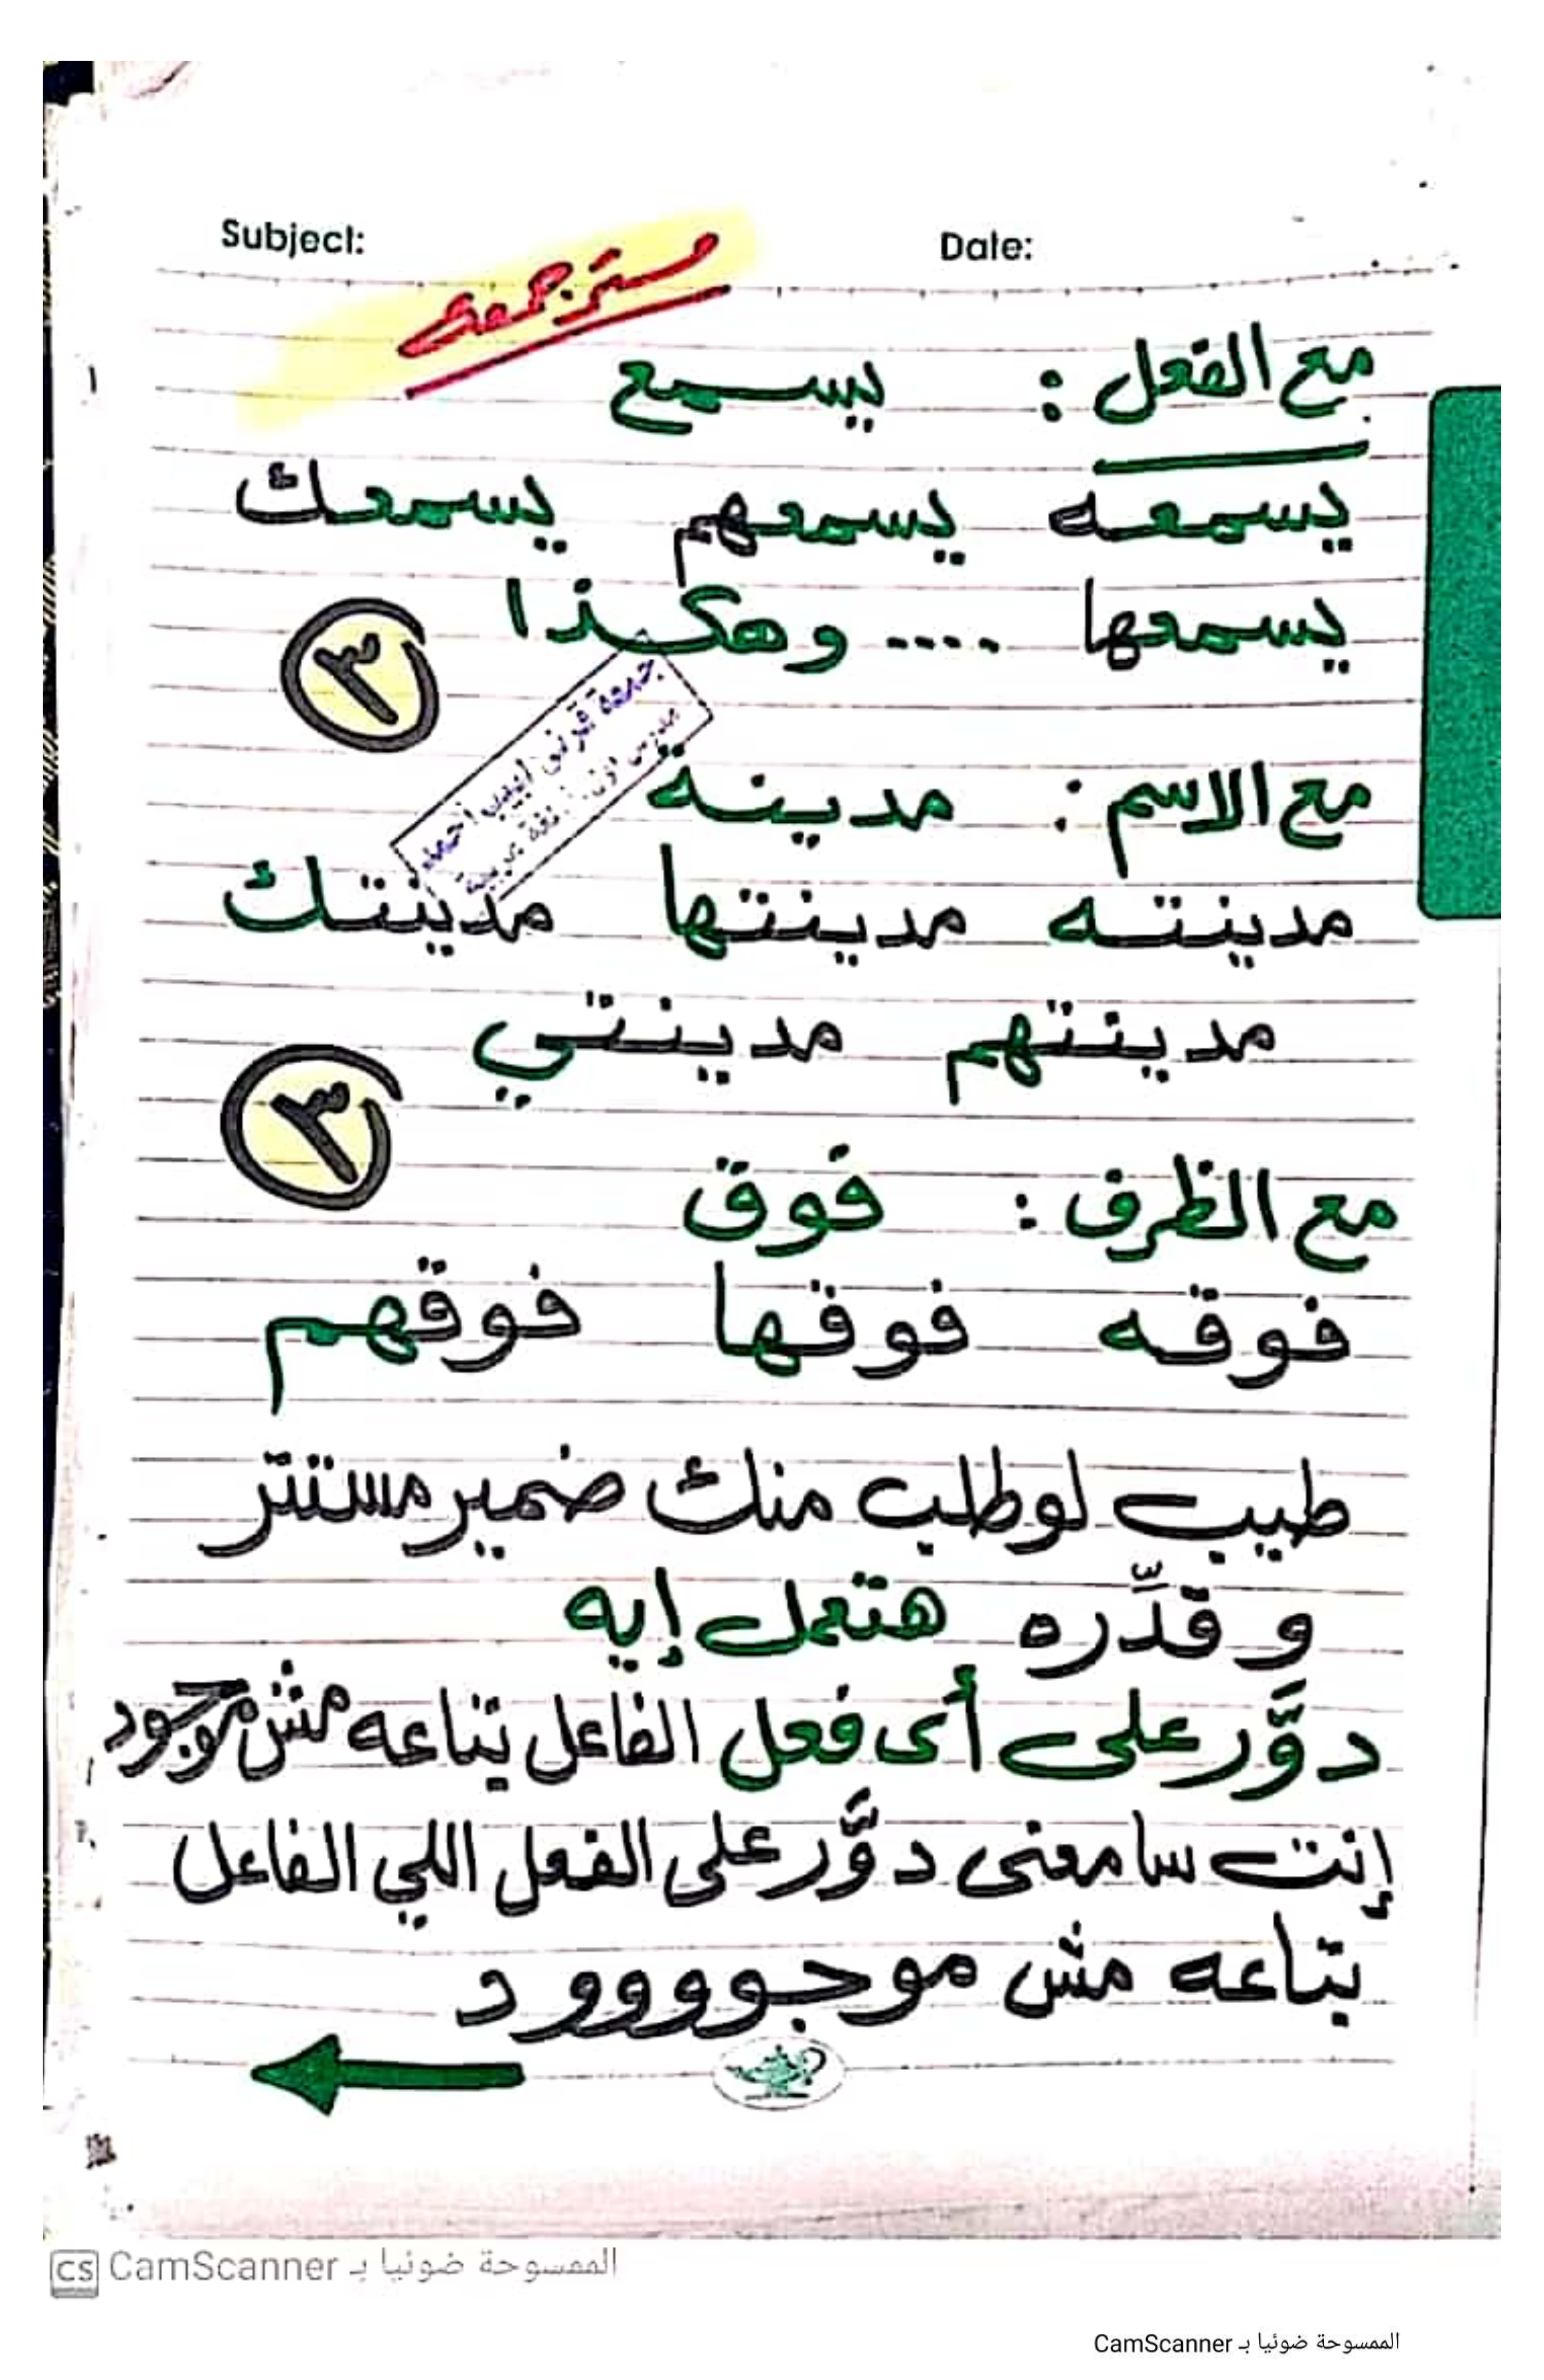 Subject:
Date:
مستر جمعه
مع الفعل : يسمع
يسمعه يسمعهم يسمعك
يسمعها .... وهكذا
٣
جمعة قرنى لبيب احمد
مدرس اول لغة عربية
مع الاسم : مدينة
مدينته مدينتها مدينتك
مدينتهم مدينتي
٣
مع الظرف : فوق
فوقه فوقها فوقهم
طيب لو طلب منك ضمير مستتر
و قدِّره هتعمل إيه
دوَّر على أى فعل الفاعل بتاعه مش موجود
إنت سامعنى دوَّر على الفعل اللي الفاعل
بتاعه مش موجوووود
CS الممسوحة ضوئيا بـ CamScanner
الممسوحة ضوئيا بـ CamScanner